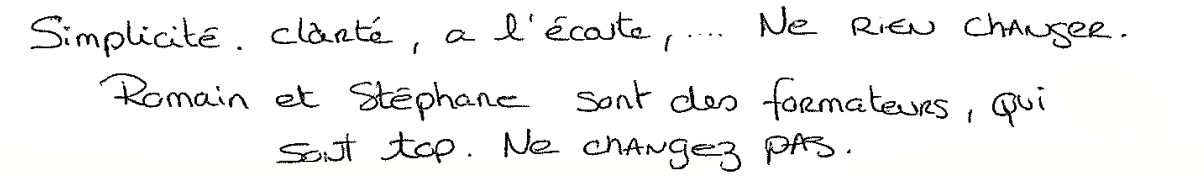 Simplicité. clarté, a l'écoute, .... Ne RIEN CHANGER.
Romain et Stéphane sont des formateurs, qui
sont top. Ne changez pas.